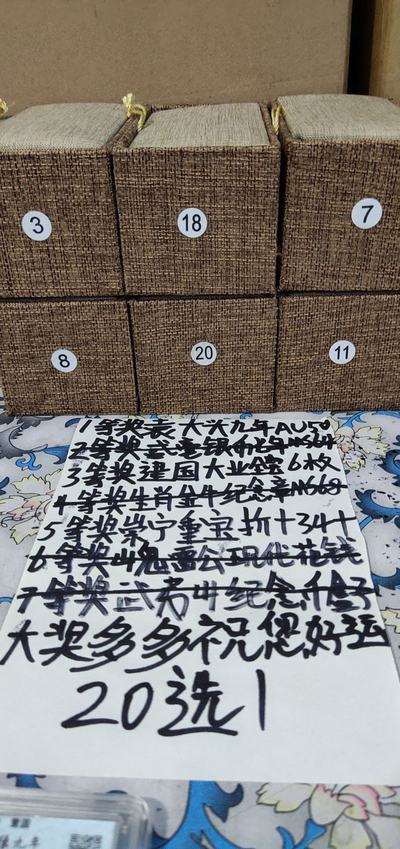 3
18
7
8
20
11
1等奖表大头九年AU50
2等奖
3等奖建国大业全套6枚
4等奖生肖金牛纪念章MS69
5等奖崇宁重宝折十34十
6等奖 现代花钱
7等奖武 纪念币盒子
大奖多多祝您好运
20选1